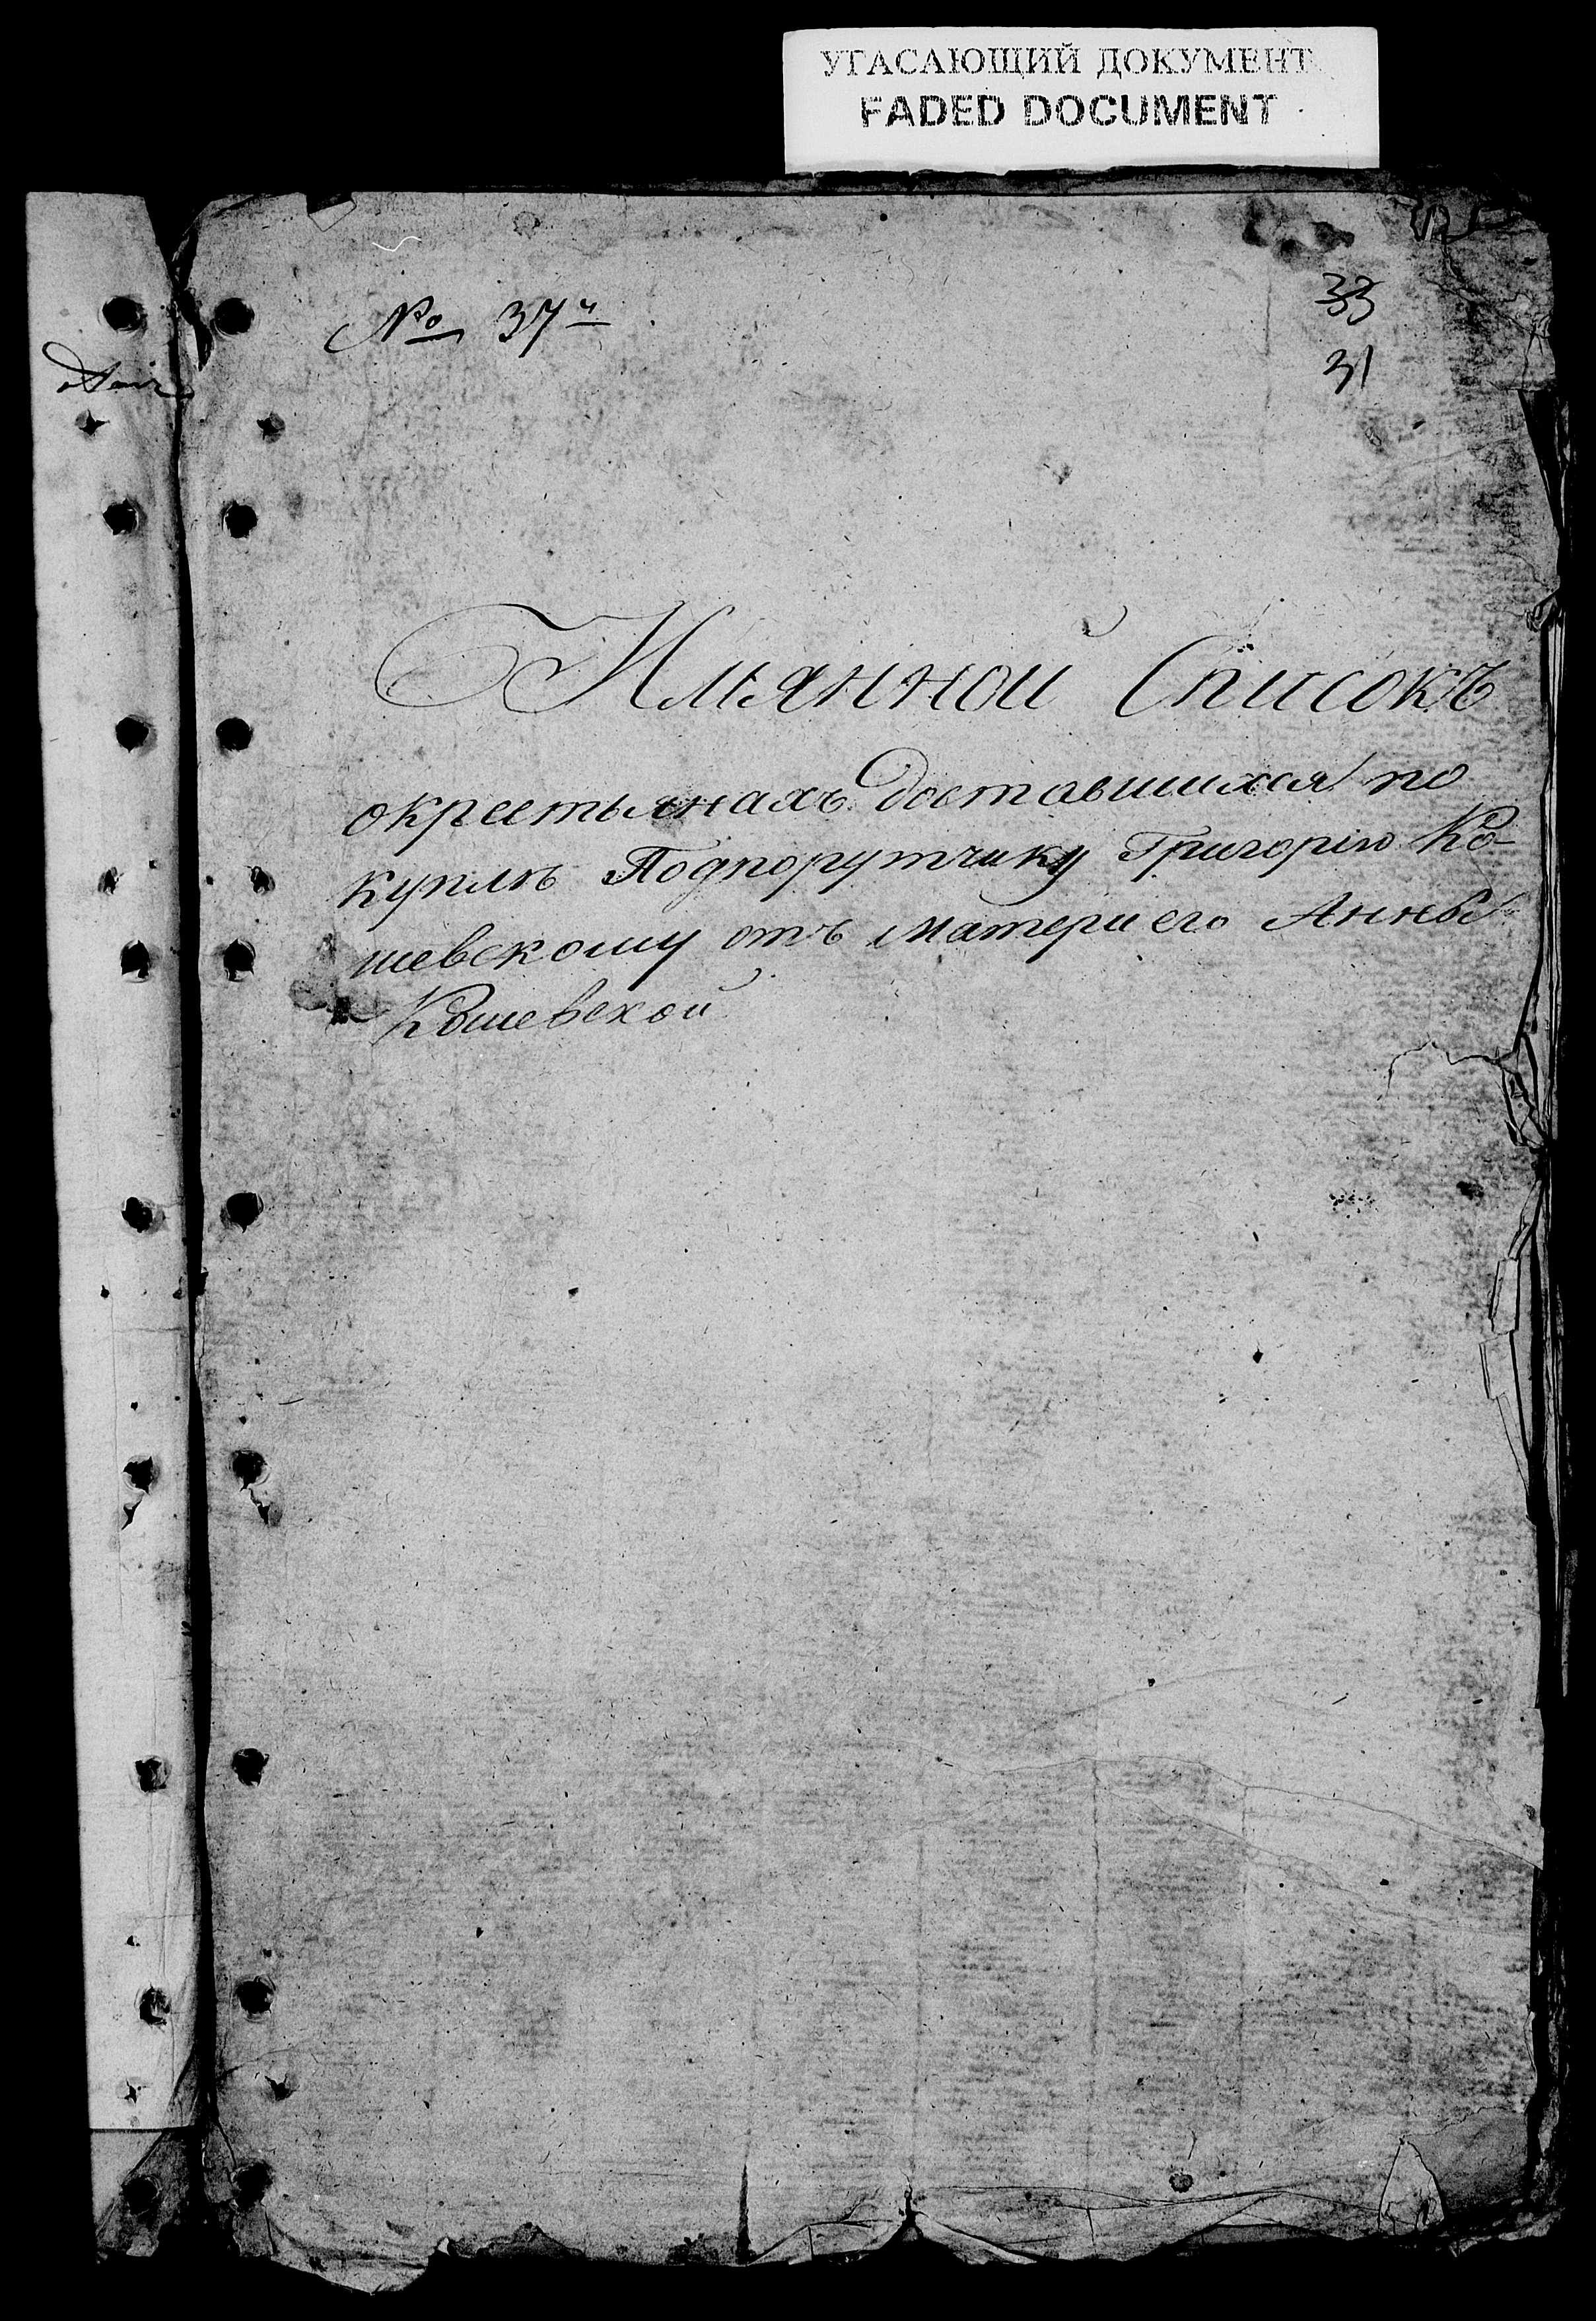 УГАСАЮЩИЙ ДОКУМЕНТ
FADED DOCUMENT
33
№ 37й
31
Имянной Списокъ
окрестьянахъ доставшихся по
куплѣ Подпорутчику Григорію Ко-
шевскому отъ матери его Анны
Кошевской